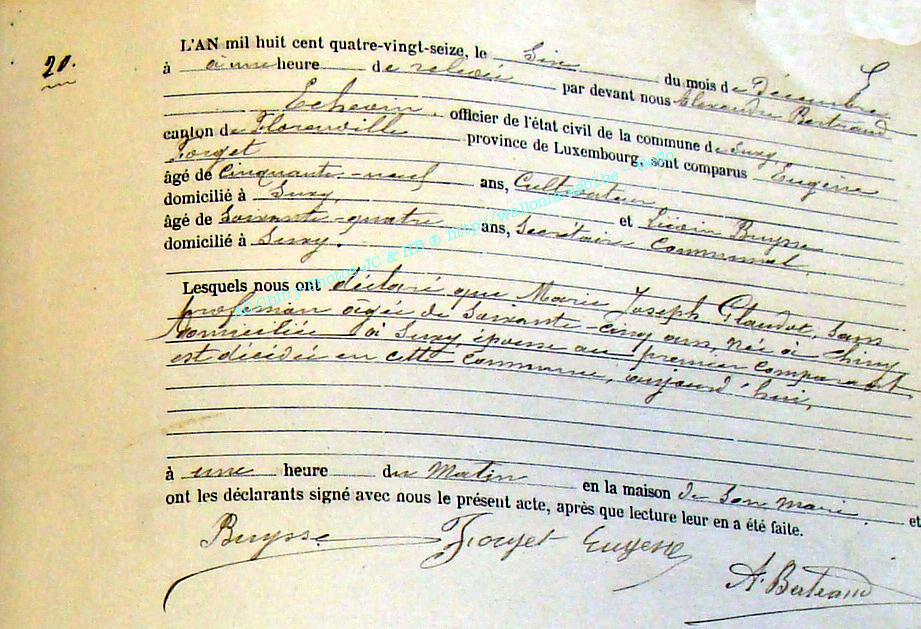 20.
L'AN mil huit cent quatre-vingt-seize, le Six du mois de Décembre
à à une heure de relevée par devant nous Alexandre Bertrand
Echevin, officier de l'état civil de la commune de Suxy
canton de Florenville province de Luxembourg, sont comparus Eugène
Forget
âgé de Cinquante-neuf ans, Cultivateur,
domicilié à Suxy, et Buysse
âgé de Soixante-quatre ans, Secrétaire Communal,
domicilié à Suxy.
Lesquels nous ont déclaré que Marie Joseph Claudot, Sans
profession âgée de Soixante-cinq ans, née à Chiny
domiciliée à Suxy épouse au premier comparant
est décédée en cette commune, aujourd'hui,
à une heure du Matin en la maison de Son mari. et
ont les déclarants signé avec nous le présent acte, après que lecture leur en a été faite.
Buysse Forget Eugene
A. Bertrand